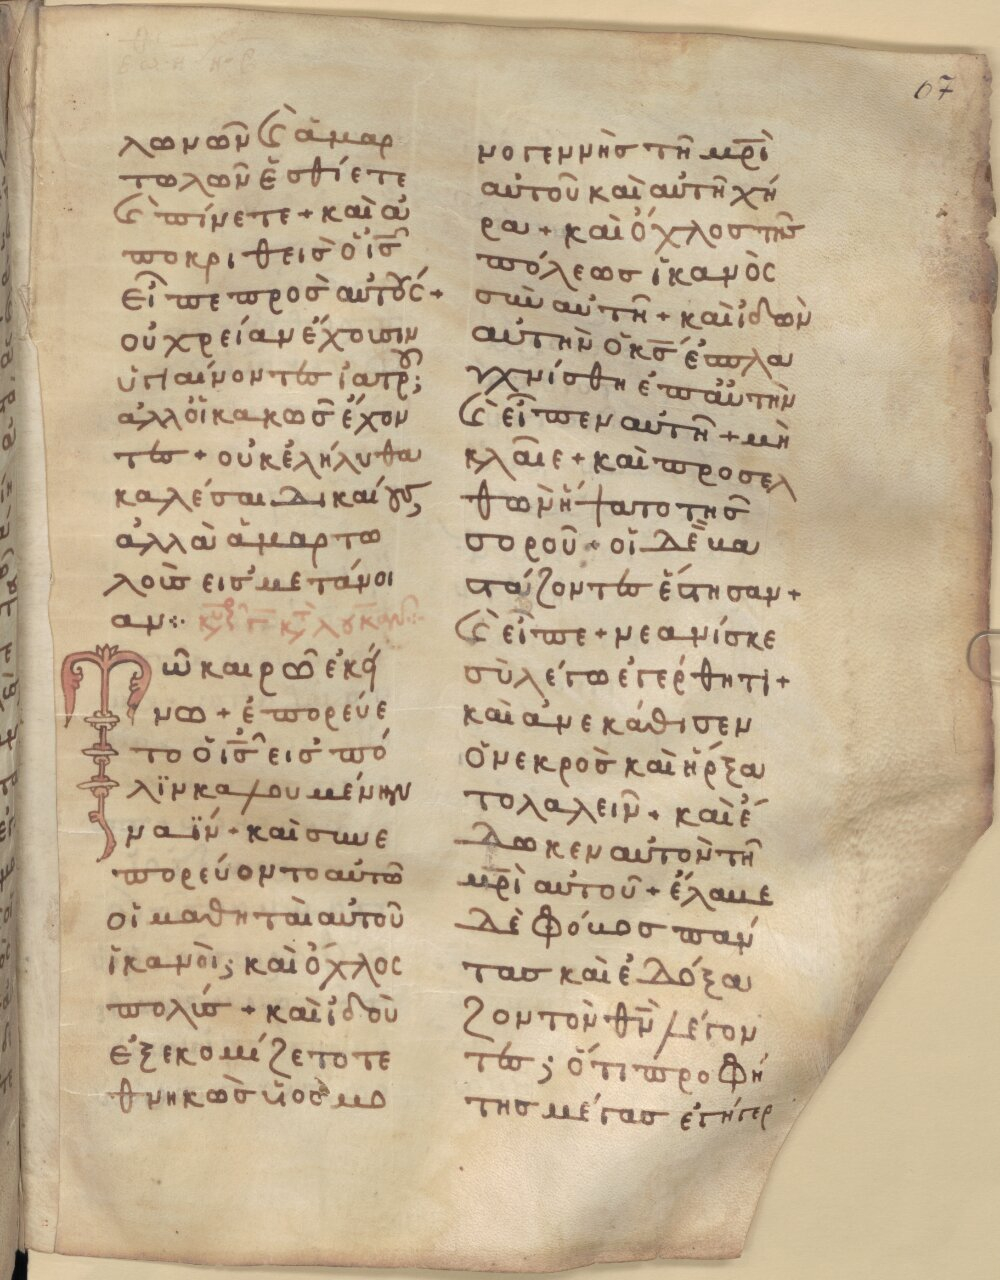 67
λωνων̑ (καὶ) ἁμαρ
τωλων̑ ἐσθίετε
(καὶ) πίνετε + καὶ ἀ
ποκριθεισ ὁ ισ̅
εἶπε προσ αὐτούσ +
οὐ χρείαν ἔχουσιν
ὑγιαίνοντεσ ἰατροῦ;
ἀλλ οἱ κακωσ ἔχον
τεσ + οὐκ ἐλήλυθα
καλέσαι δικαίουσ,
ἀλλὰ ἁμαρτω
λοὺσ εισ μετάνοι
αν :·
Τῶ καιρῶ ἐκεί
νω + ἐπορεύε
το ὁ ισ̅ εισ πό
λϊν καλουμένην
ναϊν + καὶ συνε
πορεύοντο αὐτῶ
οἱ μαθηταὶ αὐτοῦ
ἱκανοὶ; καὶ ὄχλοσ
πολὺσ + καὶ ἰδοὺ
ἐξεκομίζετο τε
θνηκὼσ υἱοσ μο
νογεννὴσ τῆ μρ̅ὶ
αὐτοῦ καὶ αὐτὴ χή
ρα + καὶ ὄχλοσ τῆσ
πόλεωσ ἱκανὸσ
σὺν αὐτῆ + καὶ ἰδὼν
αὐτὴν ὁ κσ̅ ἐσπλα
γχνίσθη ἐπ αὐτὴν
(καὶ) εἶπεν αὐτῆ + μὴ
κλαῖε + καὶ προσελ
θων ἥψατο τησ
σοροῦ + οἱ δὲ βα
στάζοντεσ ἔστησαν +
(καὶ) εἶπε + νεανίσκε
σὺ λέγω ἐγέρθητι +
καὶ ἀνεκάθισεν
ὁ νεκρὸσ καὶ ἤρξα
το λαλειν̑ + καὶ ἔ
δωκεν αὐτὸν τῆ
μρ̅ὶ αὐτοῦ + ἔλαβε
δὲ φόβοσ πάν
τασ καὶ ἐδόξα
ζον τὸν θν̅ λέγον
τεσ; ὅτι προφή
τησ μέγασ ἐγήγερ